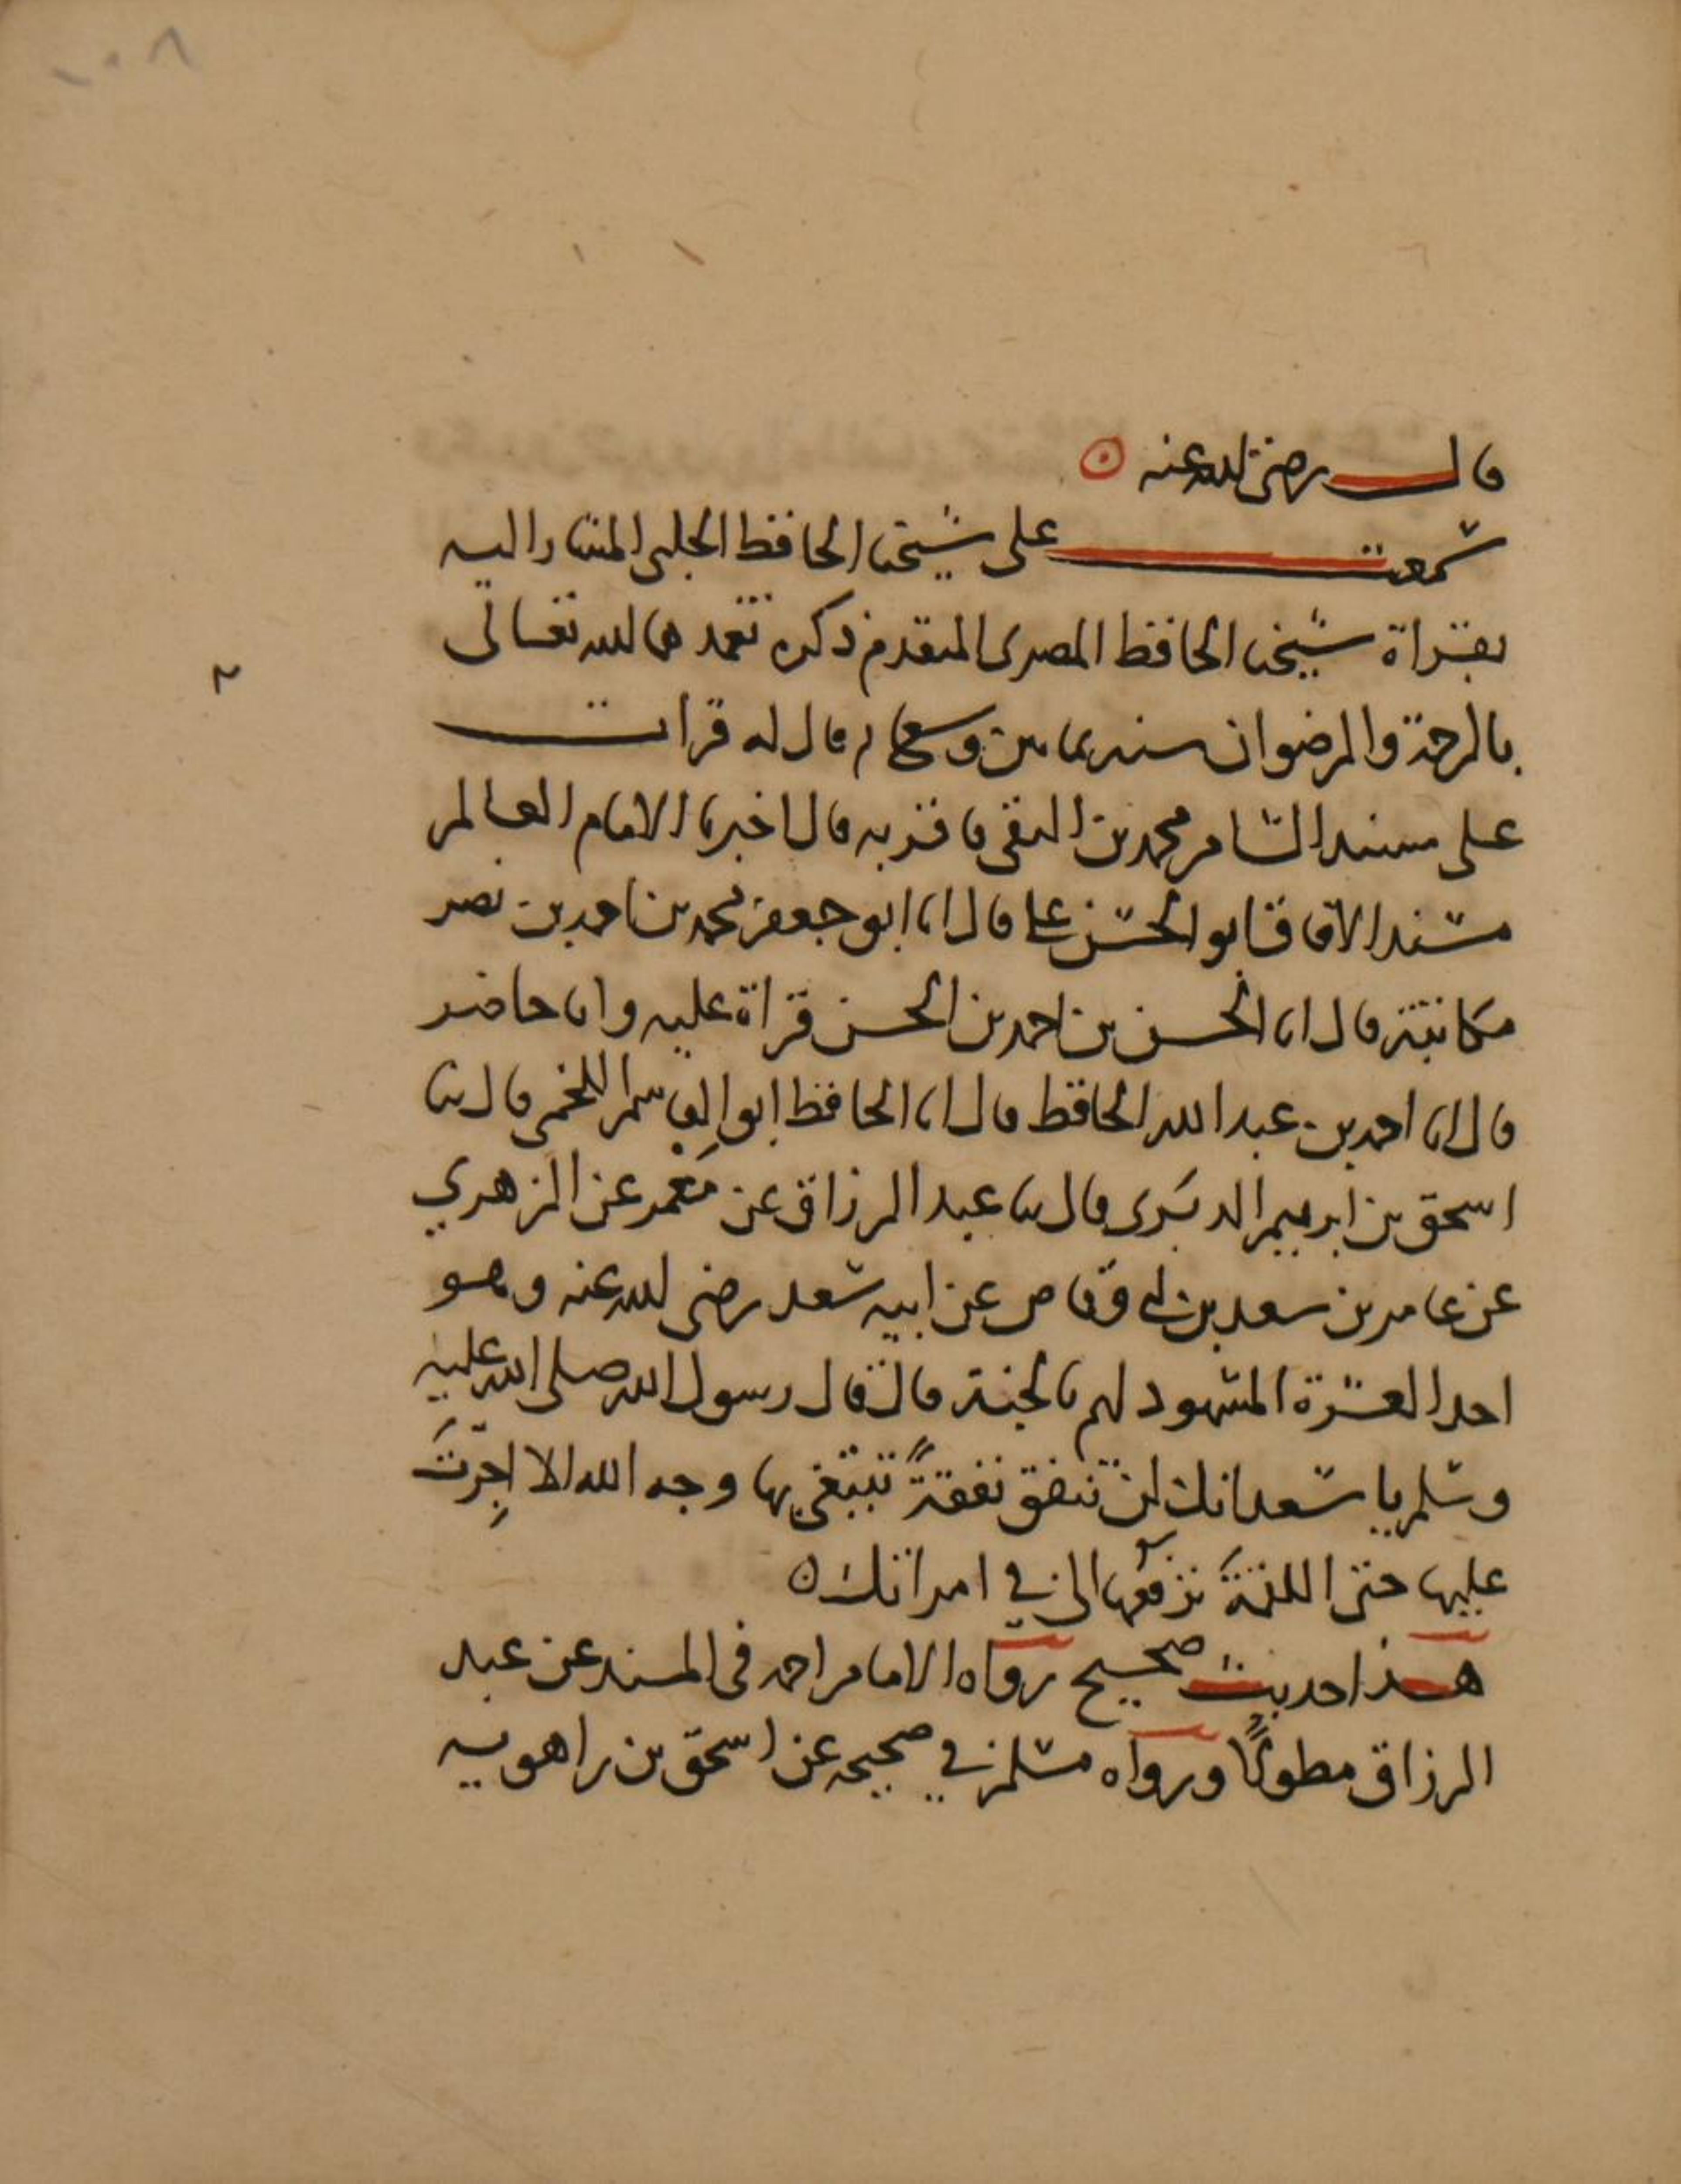 ١٠٨
قال رضي الله عنه ⊙
سمعت على شيخنا الحافظ الحلبي المشار اليه
بقراة شيخنا الحافظ المصري المتقدم ذكره تغمدهما الله تعالى
بالرحمة والرضوان قال له قرات
على مسند الشام محمد بن التقي فاقر به قال اخبرنا الامام العالم
مسند الافاق ابو الحسن علي قال انا ابو جعفر محمد بن احمد بن نصر
مكاتبة قال انا الحسن بن احمد بن الحسن قراة عليه وانا حاضر
قال انا احمد بن عبد الله الحافظ قال انا الحافظ ابو القاسم اللخمي قال ثنا
اسحق بن ابرهيم الدبري قال ثنا عبد الرزاق عن معمر عن الزهري
عن عامر بن سعد بن ابي وقاص عن ابيه سعد رضي الله عنه وهو
احد العشرة المشهود لهم بالجنة قال قال رسول الله صلى الله عليه
وسلم يا سعد انك لن تنفق نفقةً تبتغي بها وجه الله الا اجِرتَ
عليها حتى اللقمةَ ترفعها الى في امراتك ن
هذا حديث صحيح رواه الامام احمد في المسند عن عبد
الرزاق مطولًا ورواه مسلم في صحيحه عن اسحق بن راهويه